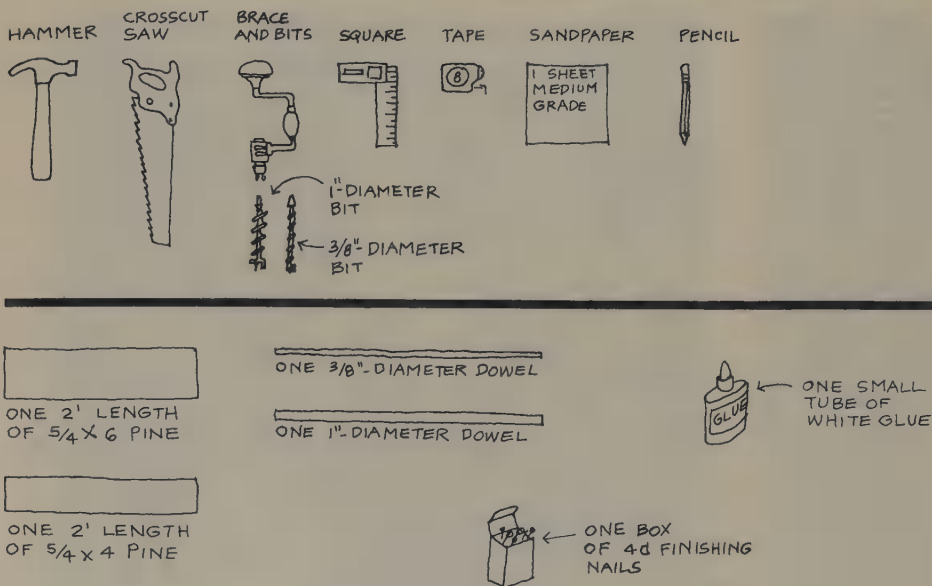 HAMMER
CROSSCUT
SAW
BRACE
AND BITS
SQUARE
TAPE
SANDPAPER
PENCIL
8
1 SHEET
MEDIUM
GRADE
1"-DIAMETER
BIT
3/8"-DIAMETER
BIT
ONE 2' LENGTH
OF 5/4 X 6 PINE
ONE 3/8"-DIAMETER DOWEL
ONE 1"-DIAMETER DOWEL
GLUE
ONE SMALL
TUBE OF
WHITE GLUE
ONE 2' LENGTH
OF 5/4 X 4 PINE
ONE BOX
OF 4d FINISHING
NAILS